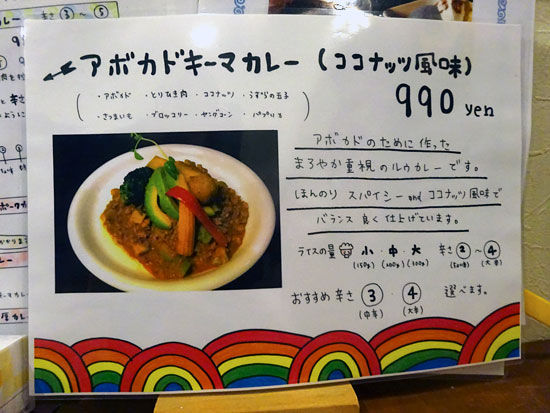 アボカドキーマカレー（ココナッツ風味）
990 yen
（・アボカド ・とりひき肉 ・ココナッツ ・うずらの玉子
・さつまいも ・ブロッコリー ・ヤングコーン ・パプリカ）
アボカドのために作った
まろやか重視のルウカレーです。
ほんのり スパイシー and ココナッツ風味で
バランス良く仕上げています。
ライスの量 小・中・大 辛さ②〜④
(150g) (200g) (大辛)
おすすめ辛さ ③・④ 選べます。
(中辛) (大辛)